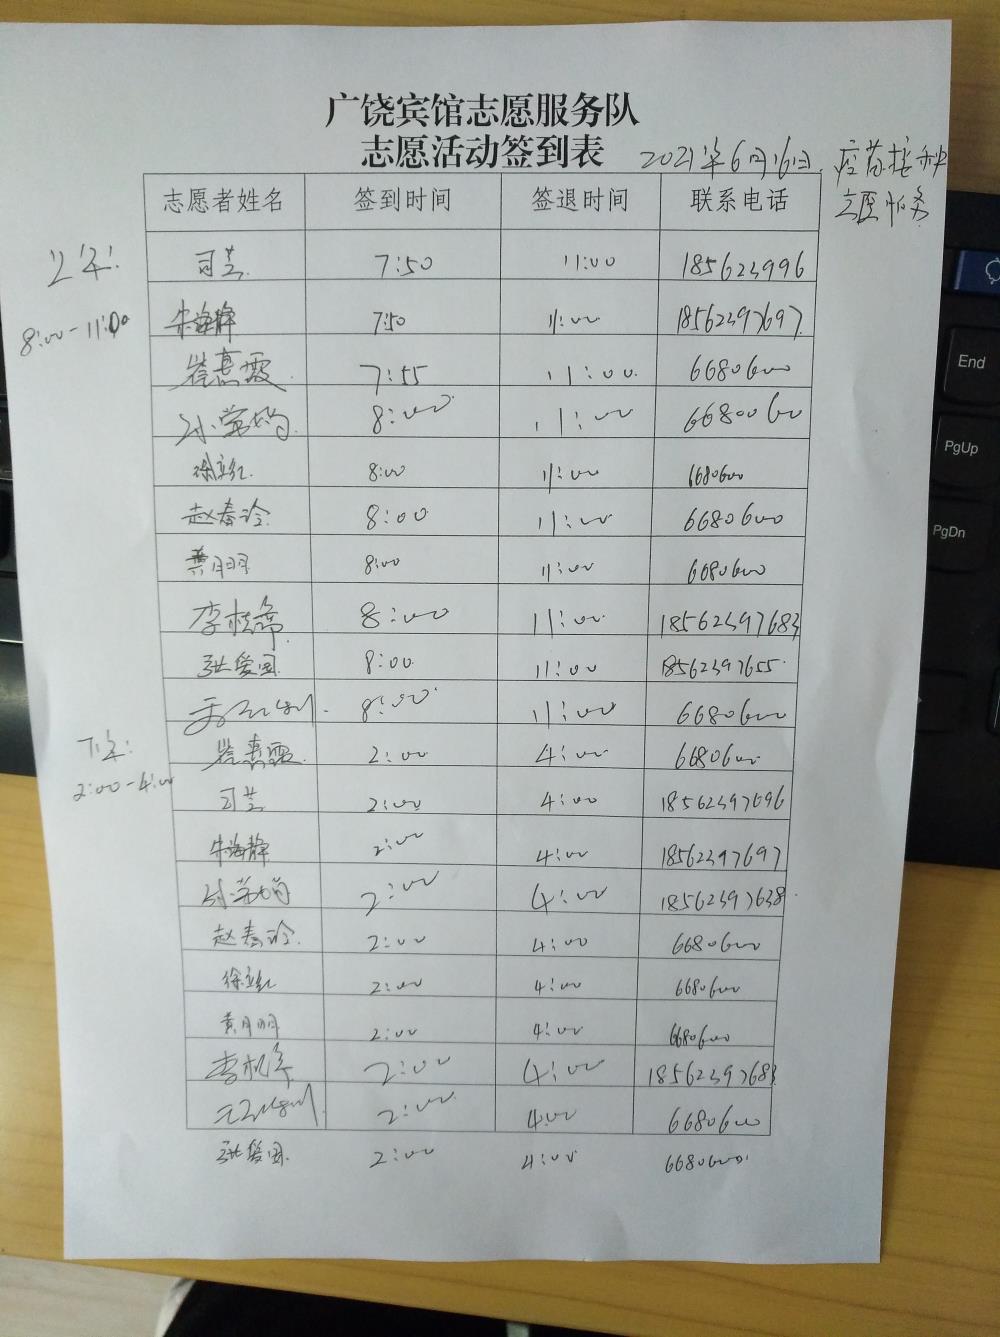 广饶宾馆志愿服务队
志愿活动签到表 2021年6月16日.疫苗接种
志愿服务
志愿者姓名 签到时间 签退时间 联系电话
上午:
8:00-11:00
司芸 7:50 11:00 185623996
朱海静 7:50 11:00 18562397697
崔嘉霞 7:55 11:00 6680600
8:00 11:00 6680060
徐立红 8:00 11:00 6680600
赵春玲 8:00 11:00 6680600
黄朋 8:00 11:00 6680600
李桂 8:00 11:00 18562397683
张爱国 8:00 11:00 18562397655
8:00 11:00 6680600
下午:
2:00-4:00
崔嘉霞 2:00 4:00 6680600
司芸 2:00 4:00 18562397696
朱海静 2:00 4:00 18562397697
2:00 4:00 18562397638
赵春玲 2:00 4:00 6680600
徐立红 2:00 4:00 6680600
黄朋 2:00 4:00 6680600
李 2:00 4:00 18562397683
2:00 4:00 6680600
张爱国 2:00 4:00 6680600